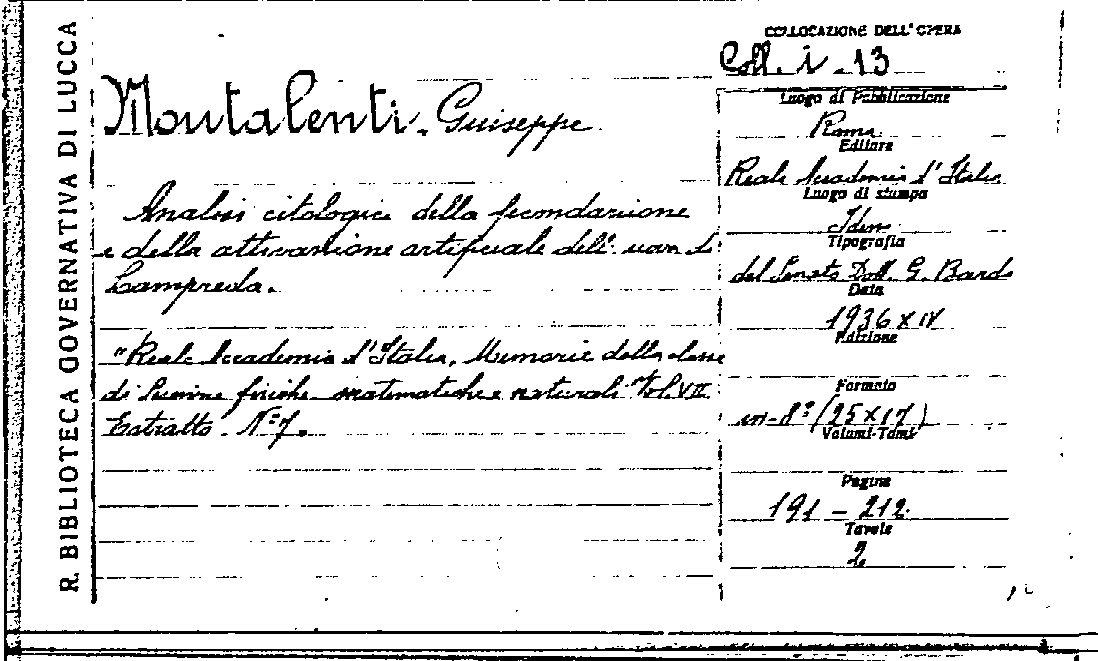 R. BIBLIOTECA GOVERNATIVA DI LUCCA
Montalenti. Giuseppe
Analisi citologica della fecondazione
e della attivazione artificiale dell' uovo di
Lampreda.
"Reale Accademia d'Italia. Memorie della classe
di Scienze fisiche matematiche e naturali" Vol. VII
Estratto N° 7.
COLLOCAZIONE DELL' OPERA
Coll. i - 13
Luogo di Pubblicazione
Roma
Editore
Reale Accademia d'Italia
Luogo di stampa
Idem
Tipografia
del Senato Dott. G. Bardi
Data
1936 XIV
Edizione
Formato
in-8° (25x17)
Volumi-Tomi
Pagine
191 - 212
Tavole
2